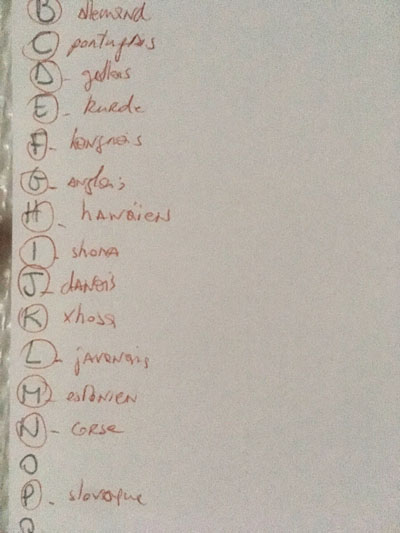 B allemand
C portugais
D - gallois
E - kurde
F - hongrois
G - anglais
H - hawaïen
I - shona
J - danois
K xhosa
L - javanais
M - estonien
N - corse
O
P - slovaque
Q